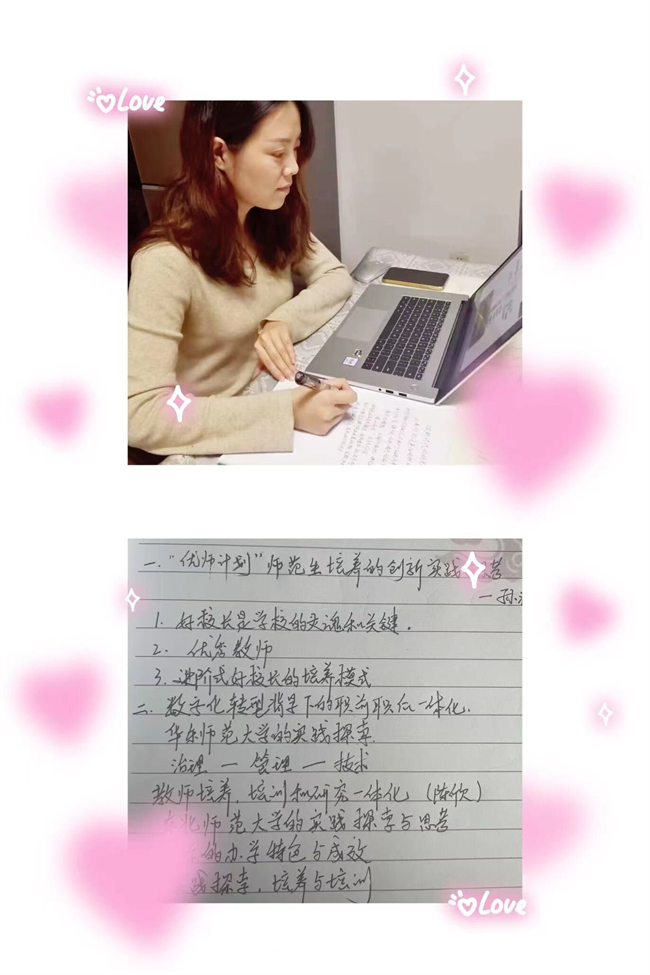 Love
一."优师计划"师范生培养的创新实践
一孙
1. 好校长是学校的灵魂和关键.
2. 优秀教师
3. 进阶式好校长的培养模式
二. 数字化转型背景下的职前职后一体化.
华东师范大学的实践探索
治理一管理一技术
教师培养,培训和研究一体化(陈欣)
东北师范大学的实践探索与思考
的办学特色与成效
践探索,培养与培训
Love